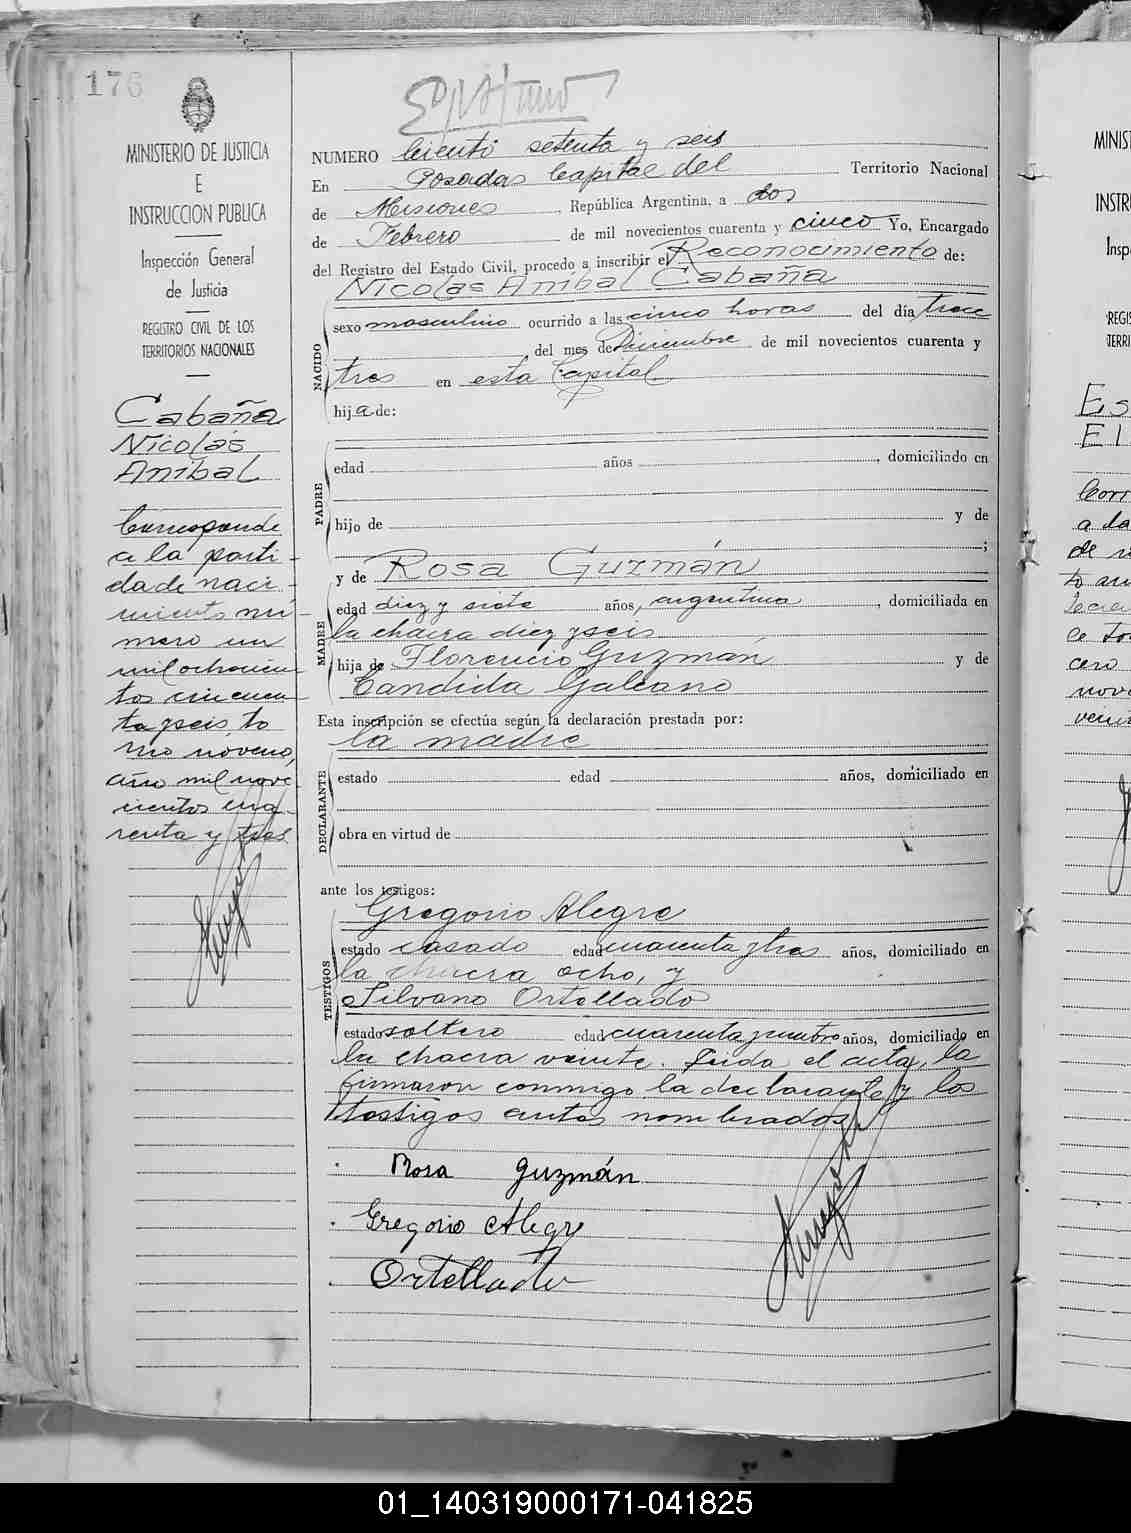 176
MINISTERIO DE JUSTICIA
E
INSTRUCCION PUBLICA
Inspección General
de Justicia
REGISTRO CIVIL DE LOS
TERRITORIOS NACIONALES
Cabaña
Nicolás
Anibal
Corresponde
a la parti-
da de naci-
miento nú-
mero un
mil ochocien-
tos cincuen-
ta y seis, to
mo noveno,
año mil nove
cientos cua-
renta y tres
NUMERO Ciento setenta y seis
En Posadas Capital del Territorio Nacional
de Misiones, República Argentina, a dos
de Febrero de mil novecientos cuarenta y cinco Yo, Encargado
del Registro del Estado Civil, procedo a inscribir el Reconocimiento de:
Nicolás Anibal Cabaña
NACIDO
sexo masculino ocurrido a las cinco horas del día trece
, del mes de Diciembre de mil novecientos cuarenta y
tres en esta Capital
hij a de:
PADRE
edad años , domiciliado en
hijo de y de
;
y de Rosa Guzmán
MADRE
edad diez y siete años, argentina, domiciliada en
la chacra diez y seis
hija de Florencio Guzmán y de
Candida Galeano
Esta inscripción se efectúa según la declaración prestada por:
la madre
DECLARANTE
estado edad años, domiciliado en
obra en virtud de
ante los testigos:
Gregorio Alegre
TESTIGOS
estado casado edad cuarenta y tres años, domiciliado en
la chacra ocho, y
Silvano Ortellado
estado soltero edad cuarenta y cuatro años, domiciliado en
la chacra veinte. Leida el acta, la
firmaron conmigo la declarante y los
testigos antes nombrados
Rosa Guzmán
Gregorio Alegre
Ortellado
MINIS
INSTR
Insp
REGIS
TERRI
Es
El
a la
de
novec
01_140319000171-041825